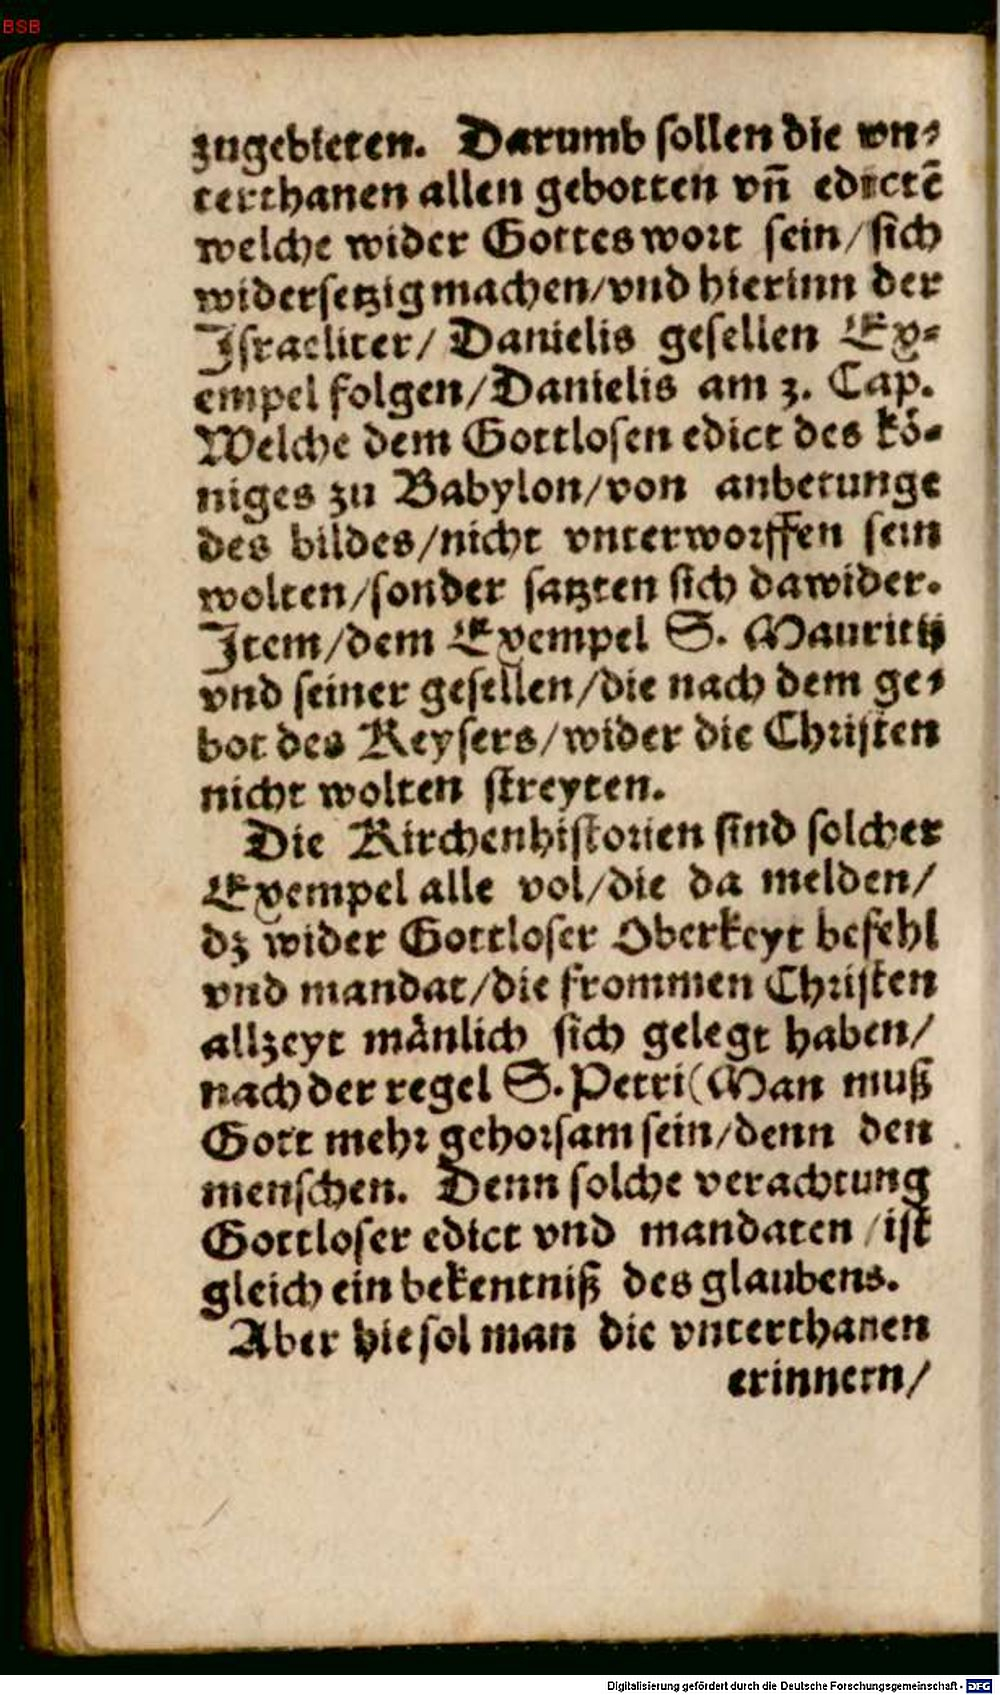 BSB
zugebieten. Darumb sollen die vn-
terthanen allen gebotten vñ edictẽ
welche wider Gottes wort sein/sich
widersetzig machen/vnd hierinn der
Israeliter/ Danielis gesellen Ex-
empel folgen/Danielis am 3. Cap.
Welche dem Gottlosen edict des kö-
niges zu Babylon/von anbetunge
des bildes/nicht vnterworffen sein
wolten/sonder satzten sich dawider.
Item/dem Exempel S. Mauritij
vnd seiner gesellen/die nach dem ge-
bot des Keysers/wider die Christen
nicht wolten streyten.
Die Kirchenhistorien sind solcher
Exempel alle vol/die da melden/
dz wider Gottloser Oberkeyt befehl
vnd mandat/die frommen Christen
allzeyt mãnlich sich gelegt haben/
nach der regel S. Petri(Man muß
Gott mehr gehorsam sein/denn den
menschen. Denn solche verachtung
Gottloser edict vnd mandaten/ist
gleich ein bekentniß des glaubens.
Aber hie sol man die vnterthanen
erinnern/
Digitalisierung gefördert durch die Deutsche Forschungsgemeinschaft - DFG